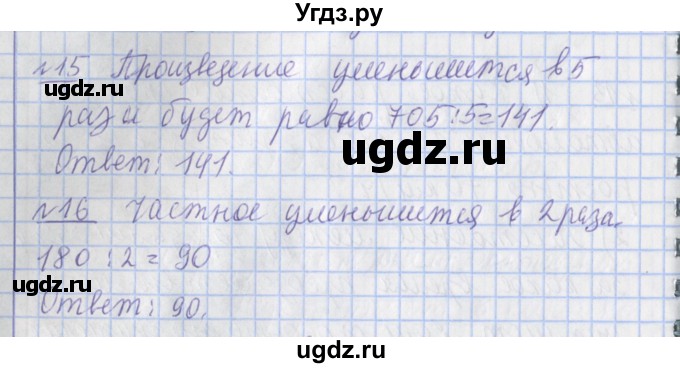 Угдз.ру
№15 Произведение уменьшится в 5
раз и будет равно 705:5=141.
ugdz.ru
ugdz.ru
Ответ: 141.
№16 Частное уменьшится в 2 раза.
180:2=90
ugdz.ru
ugdz.ru
Ответ: 90.
ugdz.ru